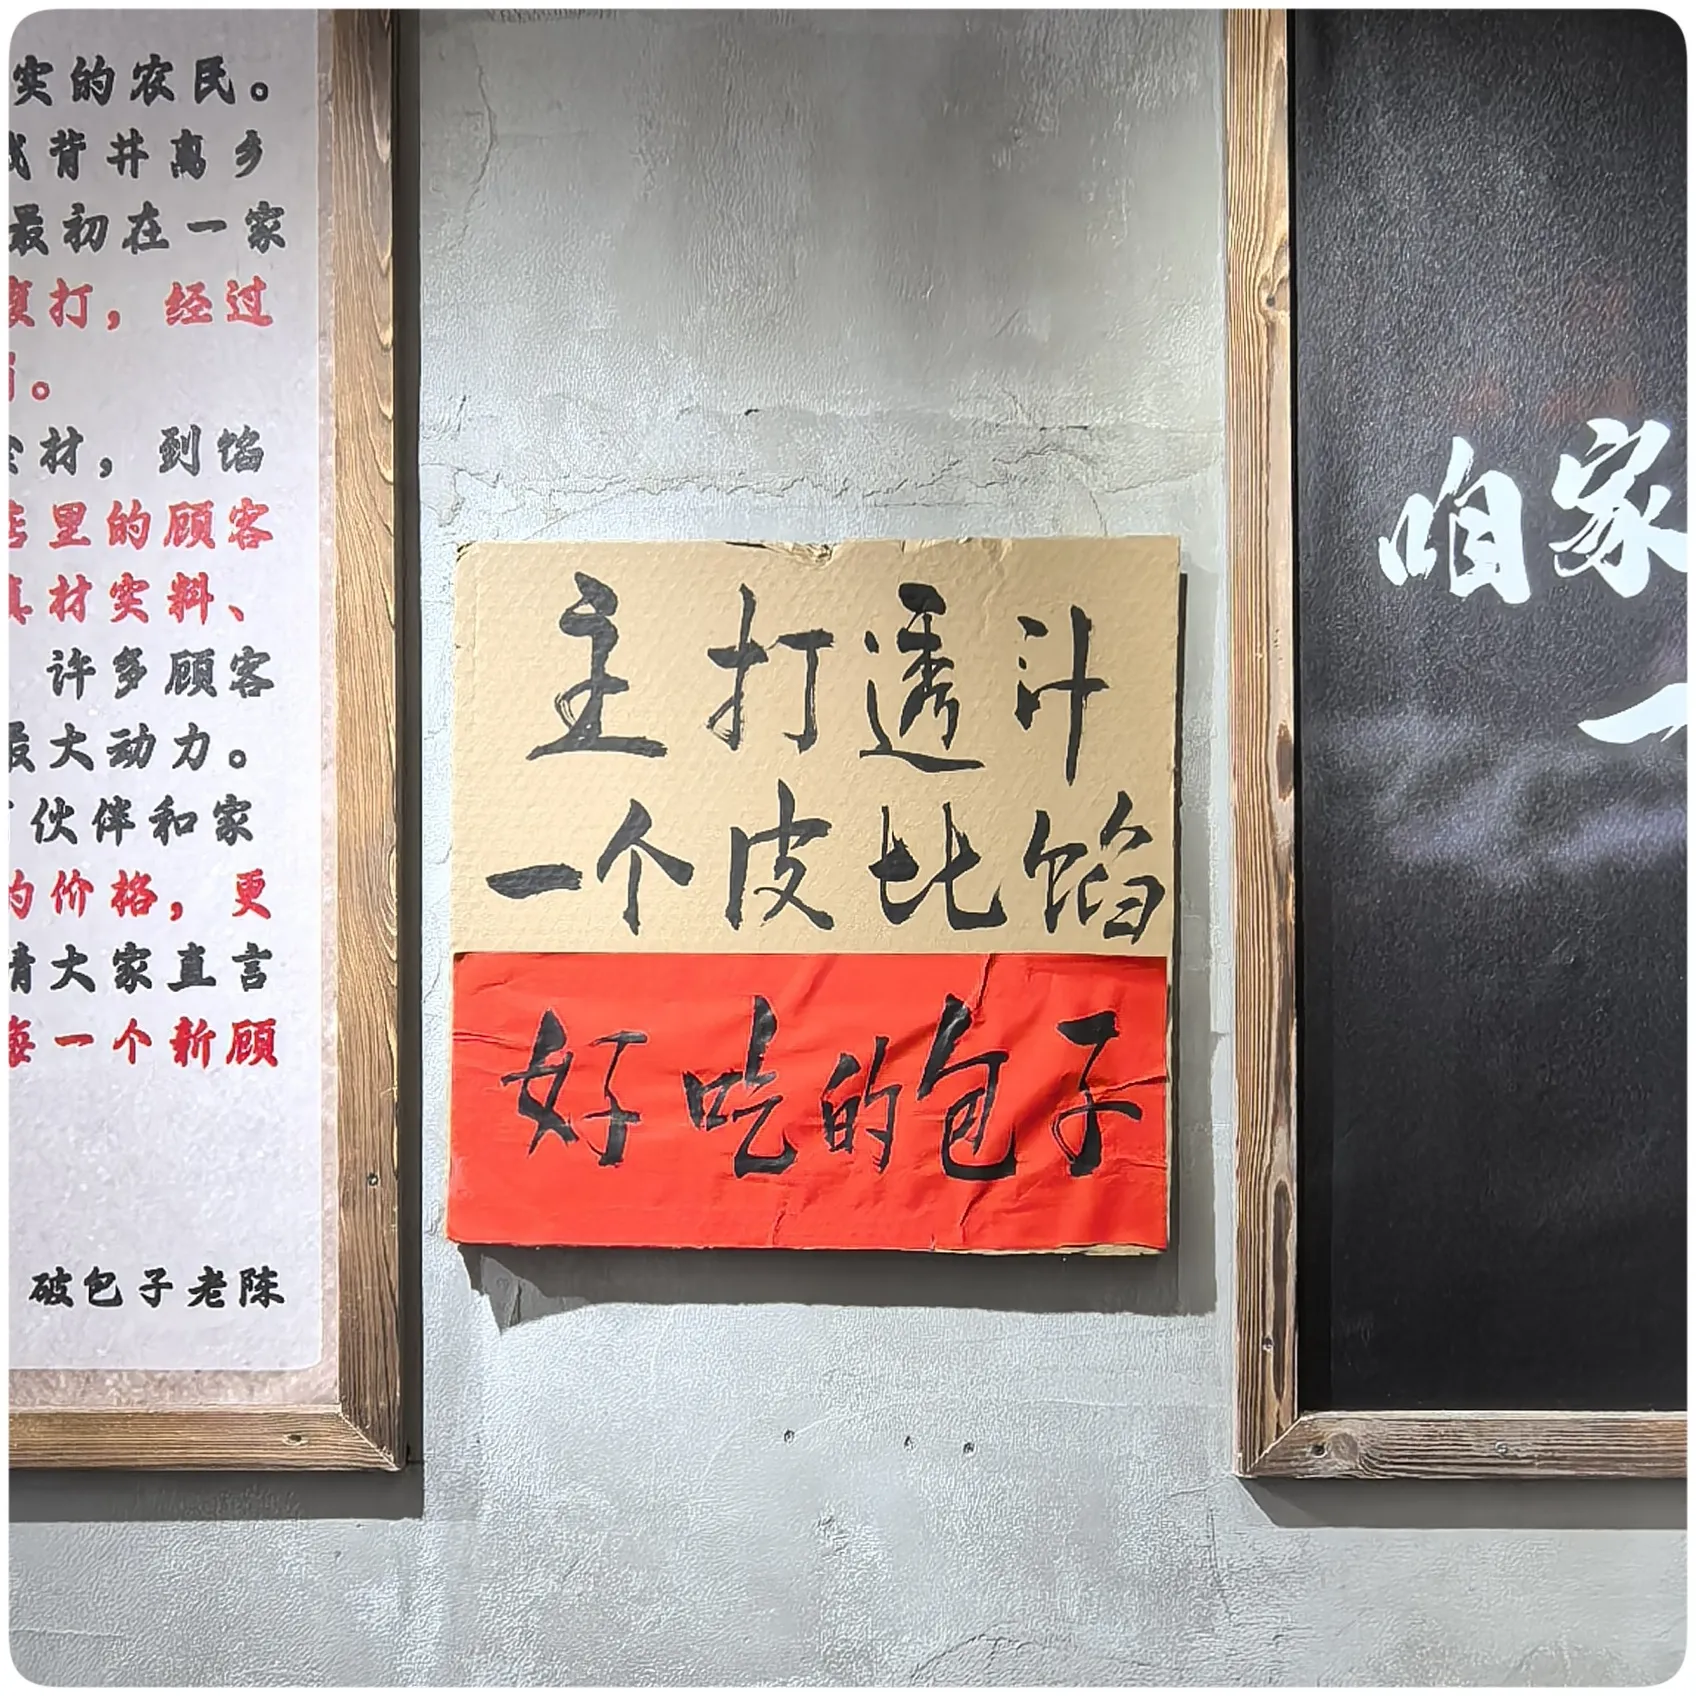 实的农民。
背井离乡
最初在一家
打，经过
。
材，到馅
里的顾客
真材实料、
许多顾客
最大动力。
伙伴和家
的价格，更
请大家直言
每一个新顾
破包子老陈
主打透汁
一个皮比馅
好吃的包子
咱家
一